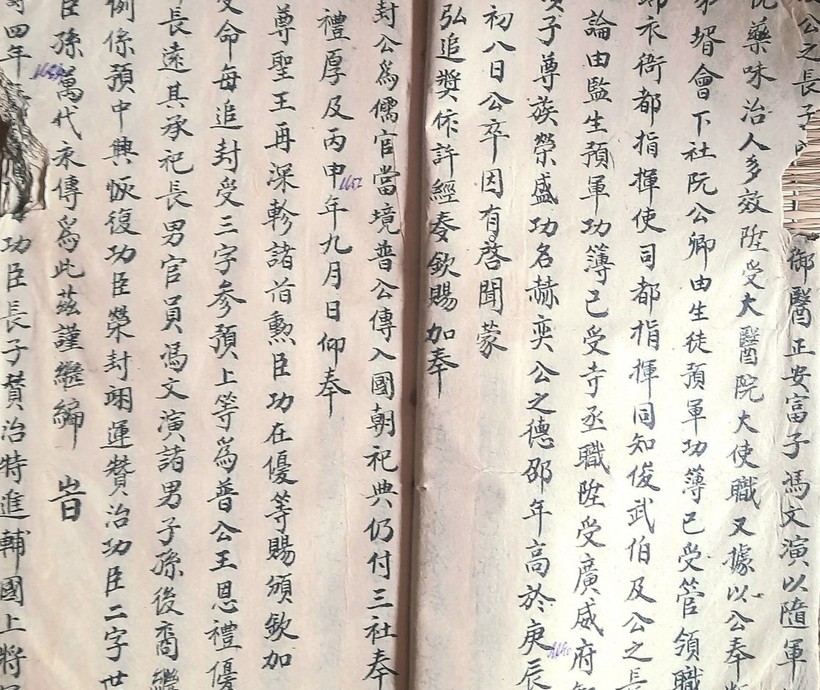 公之長子 御醫正安富子馮文演以隨軍
藥味治人多效陞受大醫院大使職又據以公奉
壻會下社阮公卿由生徒預軍功簿已受管領職
衣衛都指揮使司都指揮同知俊武伯及公之長
論由監生預軍功簿已受寺丞職陞受廣威府
子尊族榮盛功名赫奕公之德邵年高於庚辰 1640
初八日公卒因有啓聞蒙
弘追獎作許經奏欽賜加奉
封公爲儒官當境普公傳入國朝祀典仍付三社奉
禮厚及丙申年九月日仰奉 1652
尊聖王再深軫諸首勲臣功在優等賜頒欽加
受命每追封受三字參預上等爲普公王恩禮優
長遠其承祀長男官員馮文演諸男子孫後裔繼
例係預中興恢復功臣榮封翊運贊治功臣二字世
臣孫萬代永傳爲此茲謹繼編 旹
四年 功臣長子贊治特進輔國上將